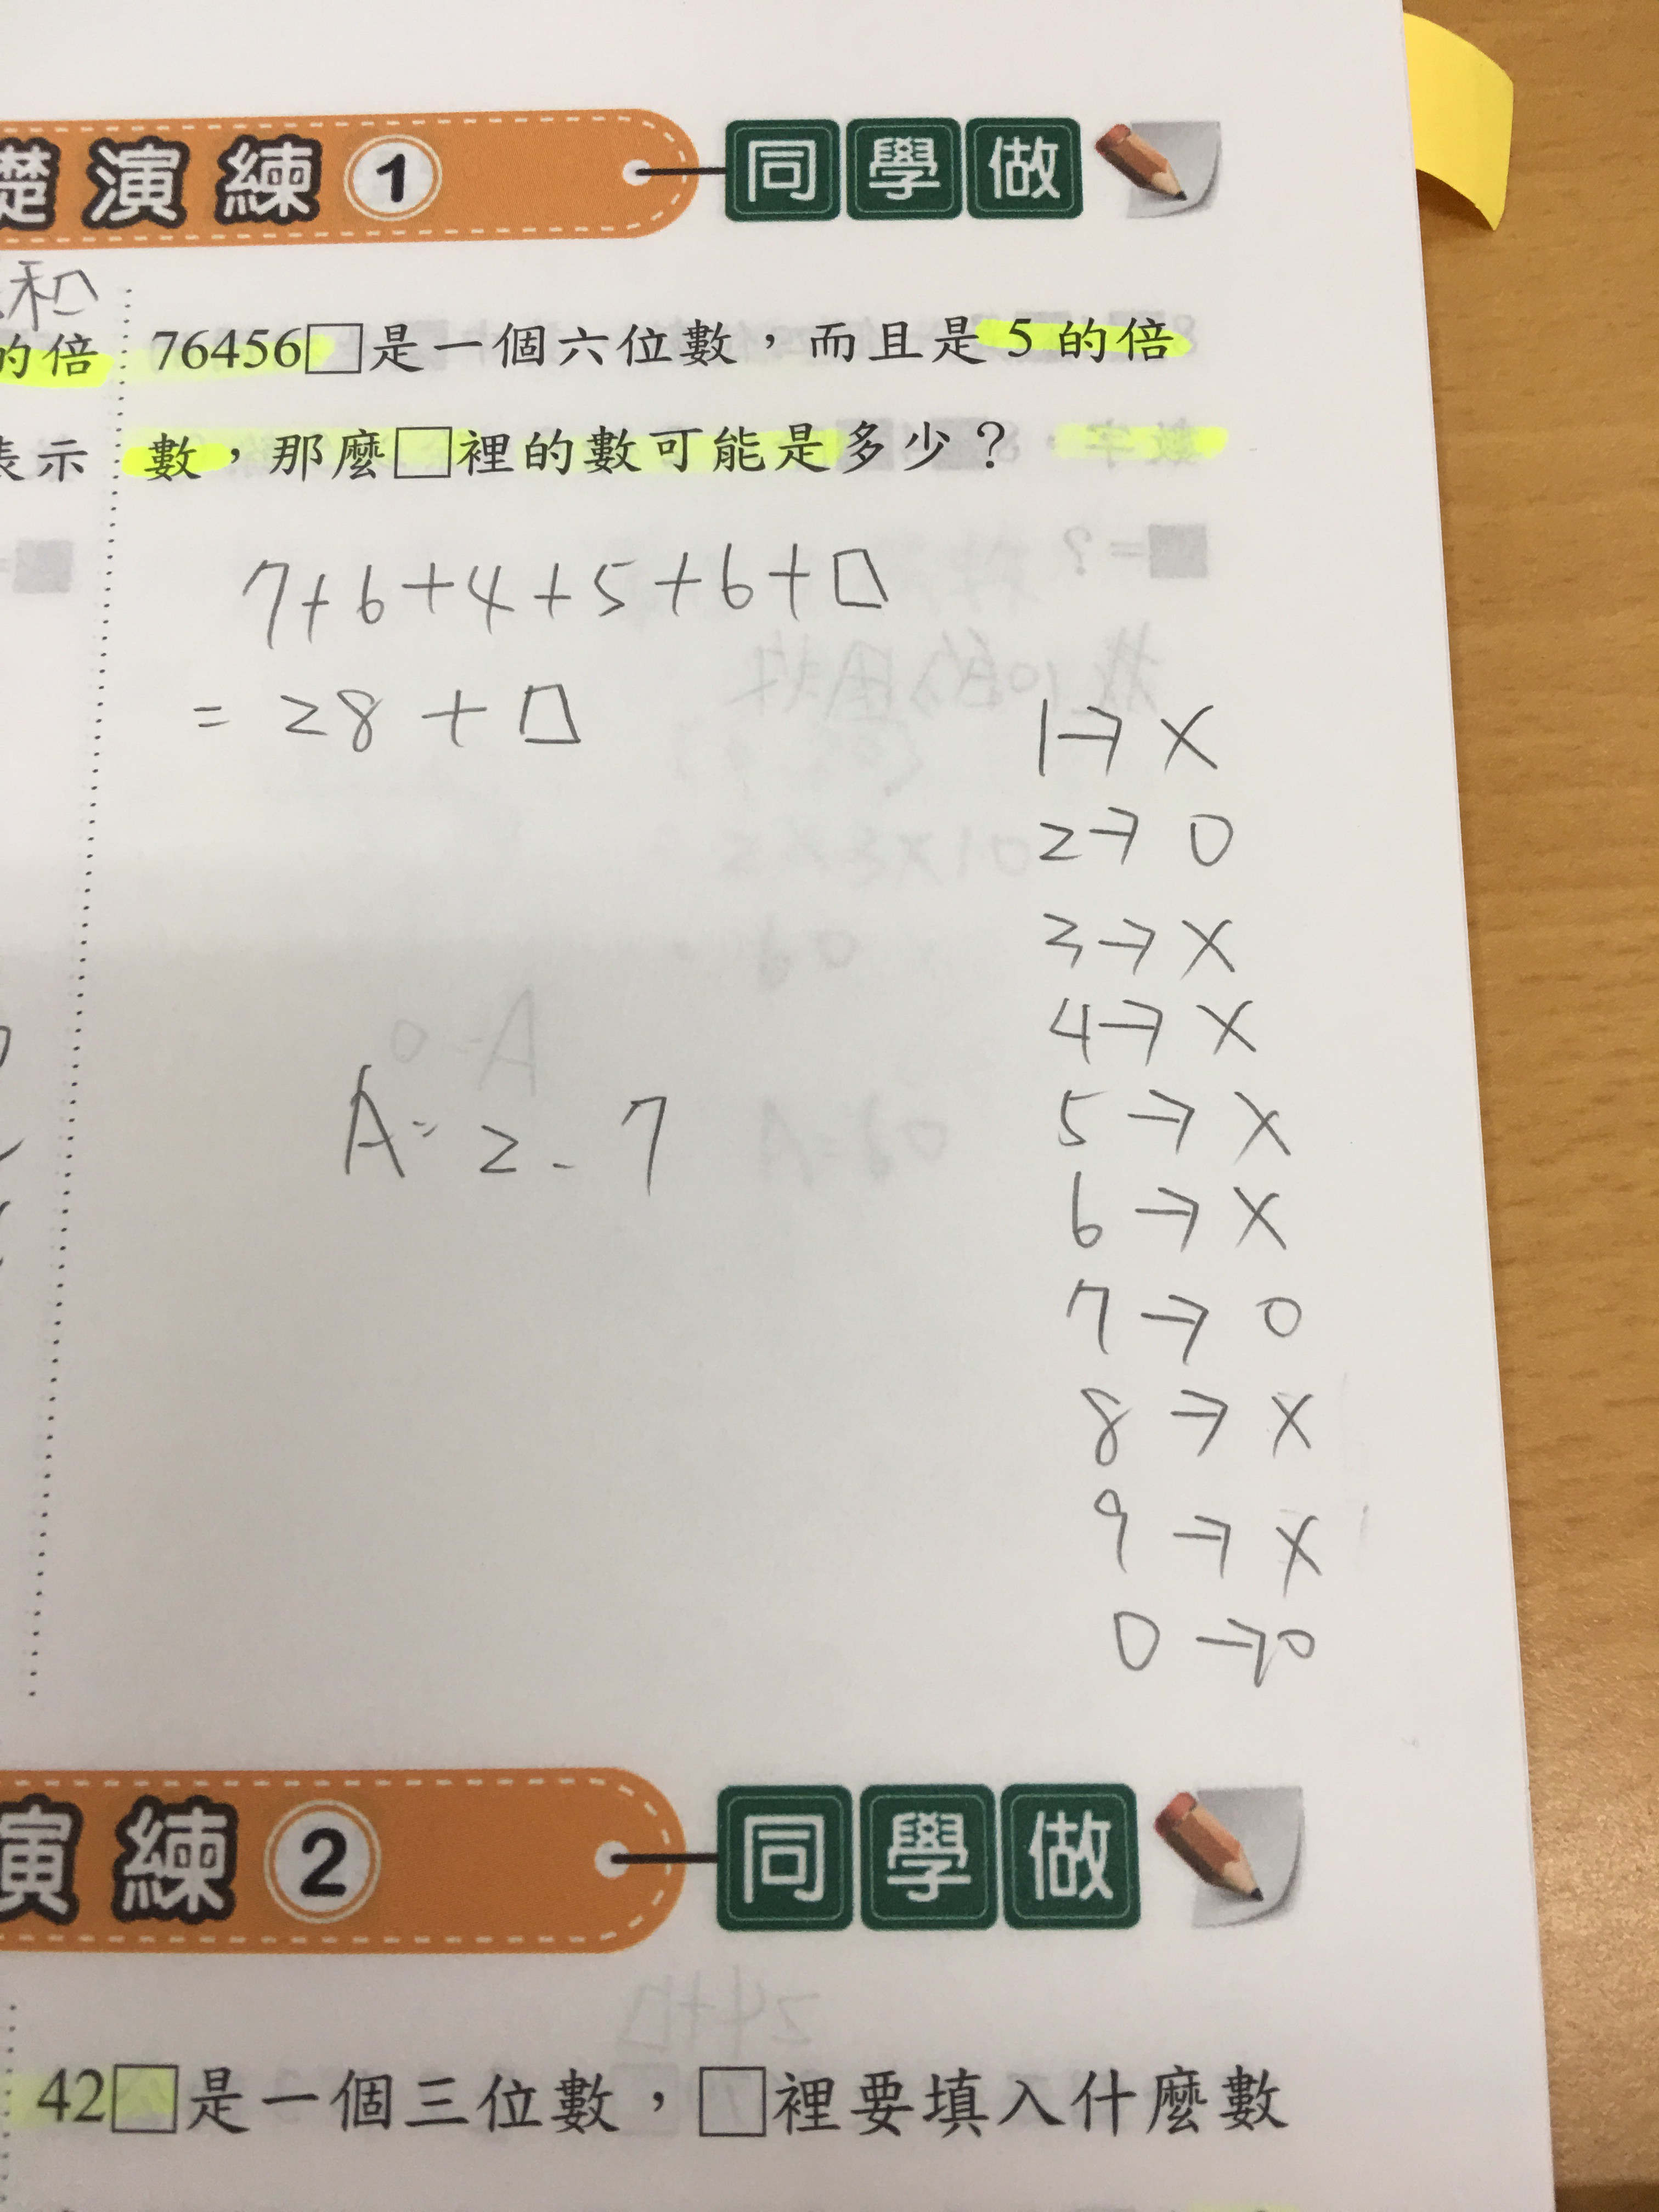 礎演練1 同學做
和
的倍
表示
76456□是一個六位數，而且是5的倍
數，那麼□裡的數可能是多少？
7+6+4+5+6+□
=28+□
A=2.7
1→X
2→0
3→X
4→X
5→X
6→X
7→0
8→X
9→X
0→0
演練2 同學做
42□是一個三位數，□裡要填入什麼數